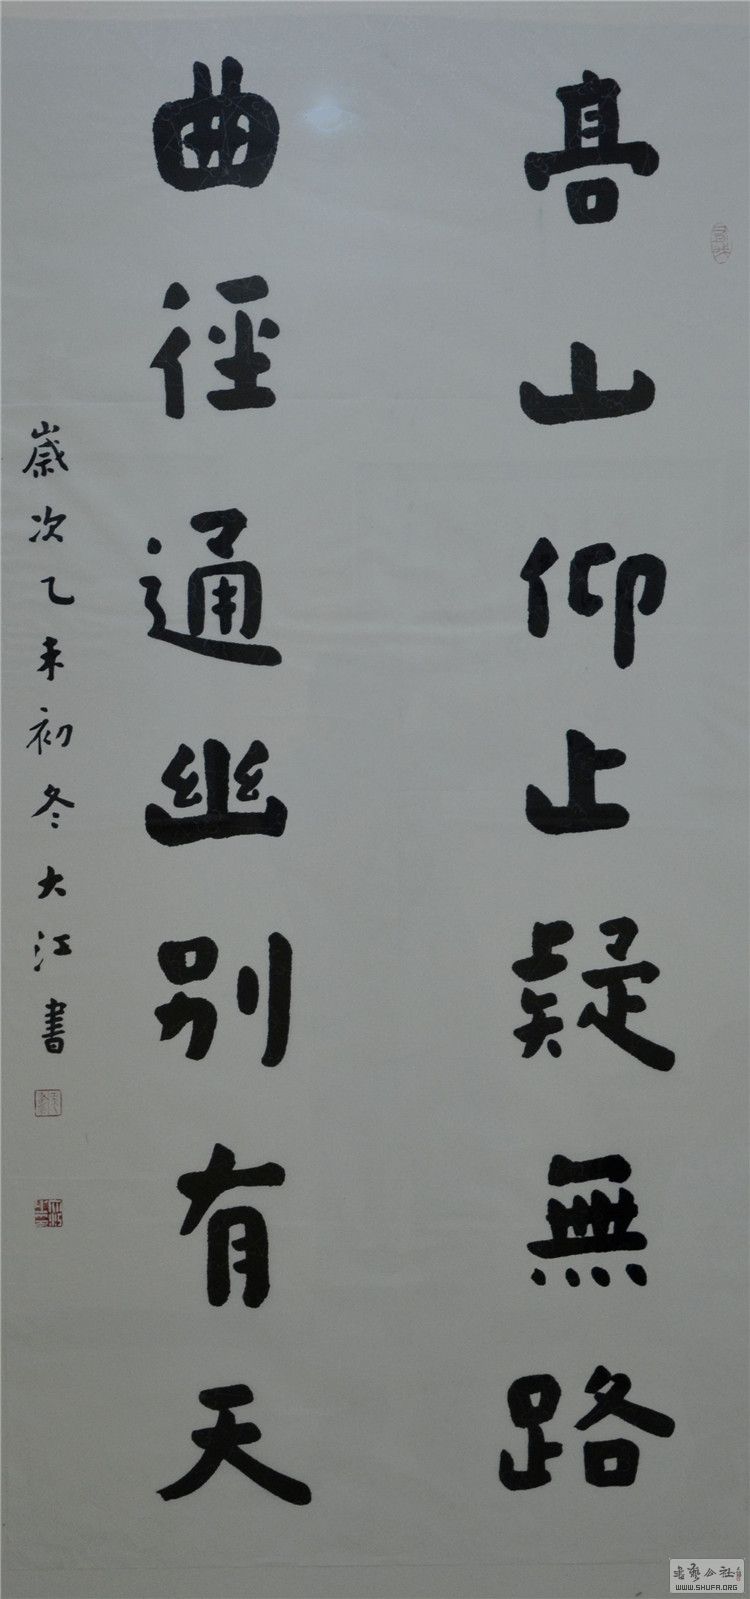 高山仰止疑無路
曲徑通幽別有天
歲次乙未初冬大江書
书艺公社
WWW.SHUFA.ORG